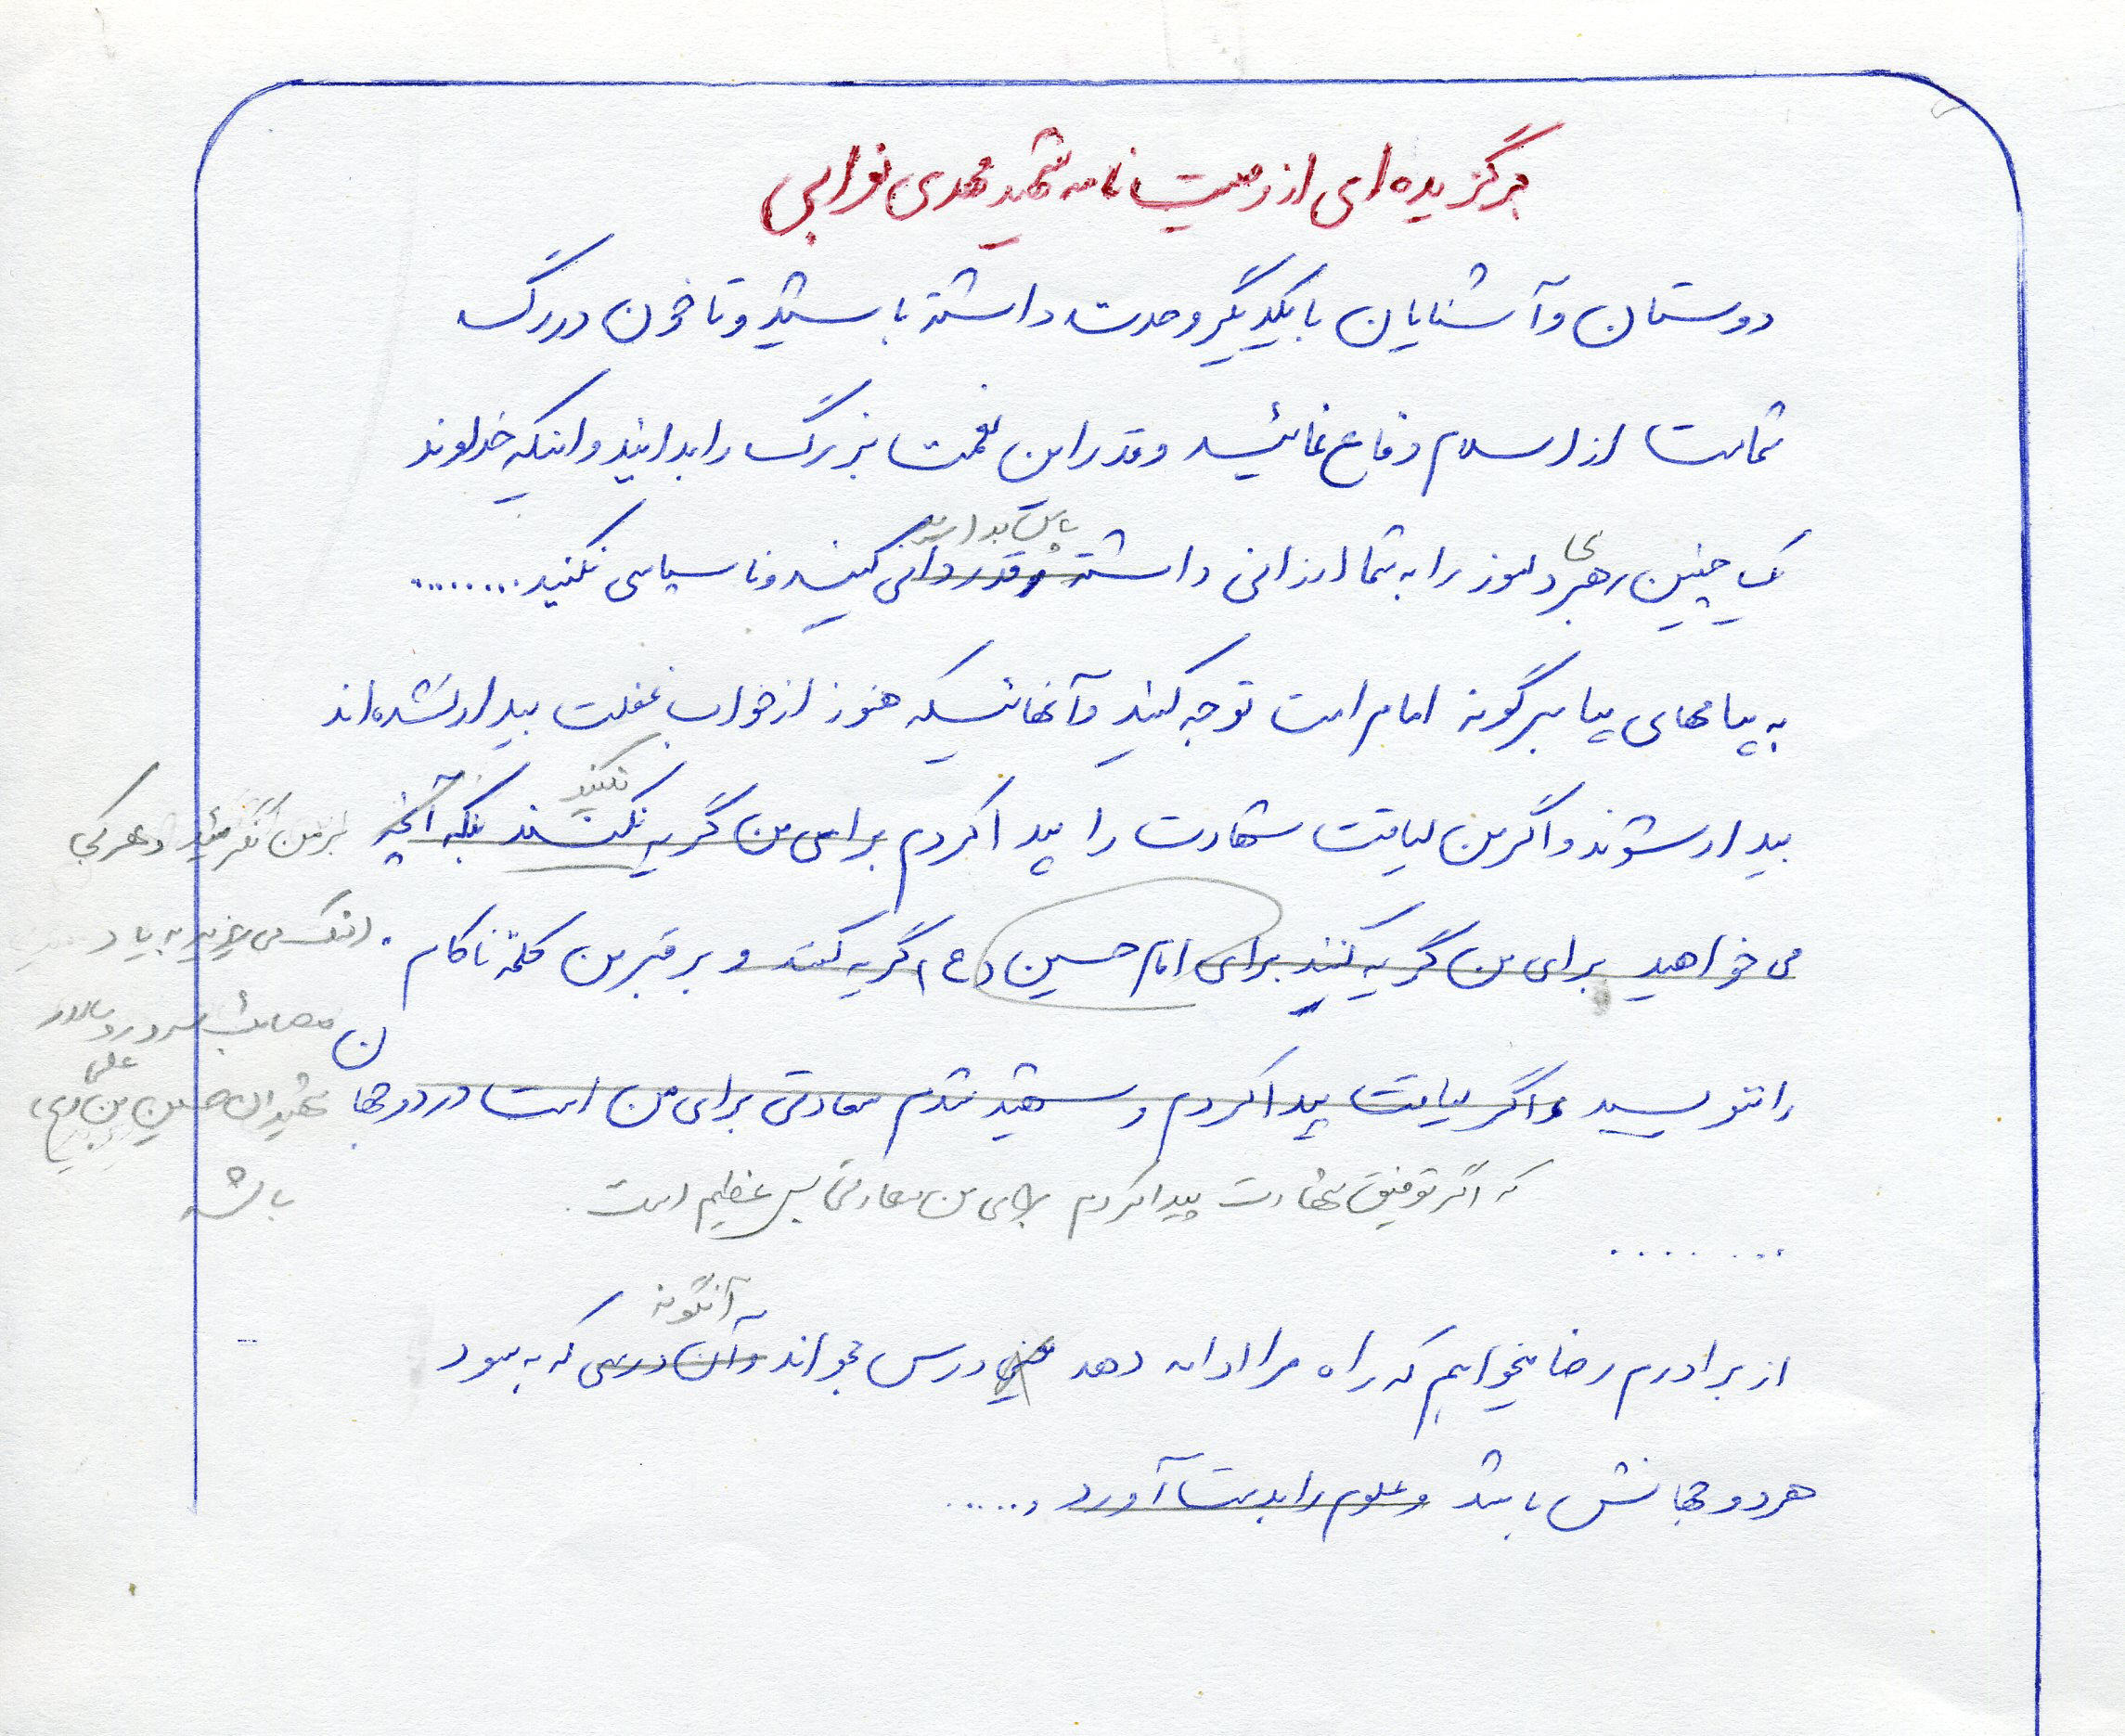 برگزیده‌ای از وصیت نامه شهید مهدی نوابی
دوستان و آشنایان با یکدیگر وحدت داشته باشید و تا خون در رگ
شماست از اسلام دفاع نمائید و قدر این نعمت بزرگ را بدانید و اینکه خداوند
پاس بدارید
یک چنین رهبر دلسوز را به شما ارزانی داشته قدردانی کنید و ناسپاسی نکنید ........
به پیامهای پیامبرگونه امام امت توجه کنید و آنهائیکه هنوز از خواب غفلت بیدار نشده‌اند
نکنید
بیدار شوند و اگر من لیاقت شهادت را پیدا کردم برای من گریه نکنند بلکه آنچه
بر من نگرئید و هر کی
می خواهید برای من گریه کنید برای امام حسین (ع) گریه کنند و بر قبر من کلمه ناکام
اشک می ریزید به یاد
مصائب سرور و سالار
را ننویسید و اگر لیاقت پیدا کردم و شهید شدم سعادتی برای من است در دو جهان
شهیدان حسین بن علی (ع)
باشد
که اگر توفیق شهادت پیدا کردم برای من سعادتی بس عظیم است.
........
آنگونه
از برادرم رضا میخواهم که راه مرا ادامه دهد درس بخواند و آن درسی که به سود
هر دو جهانش باشد و علوم را بدست آورد ......